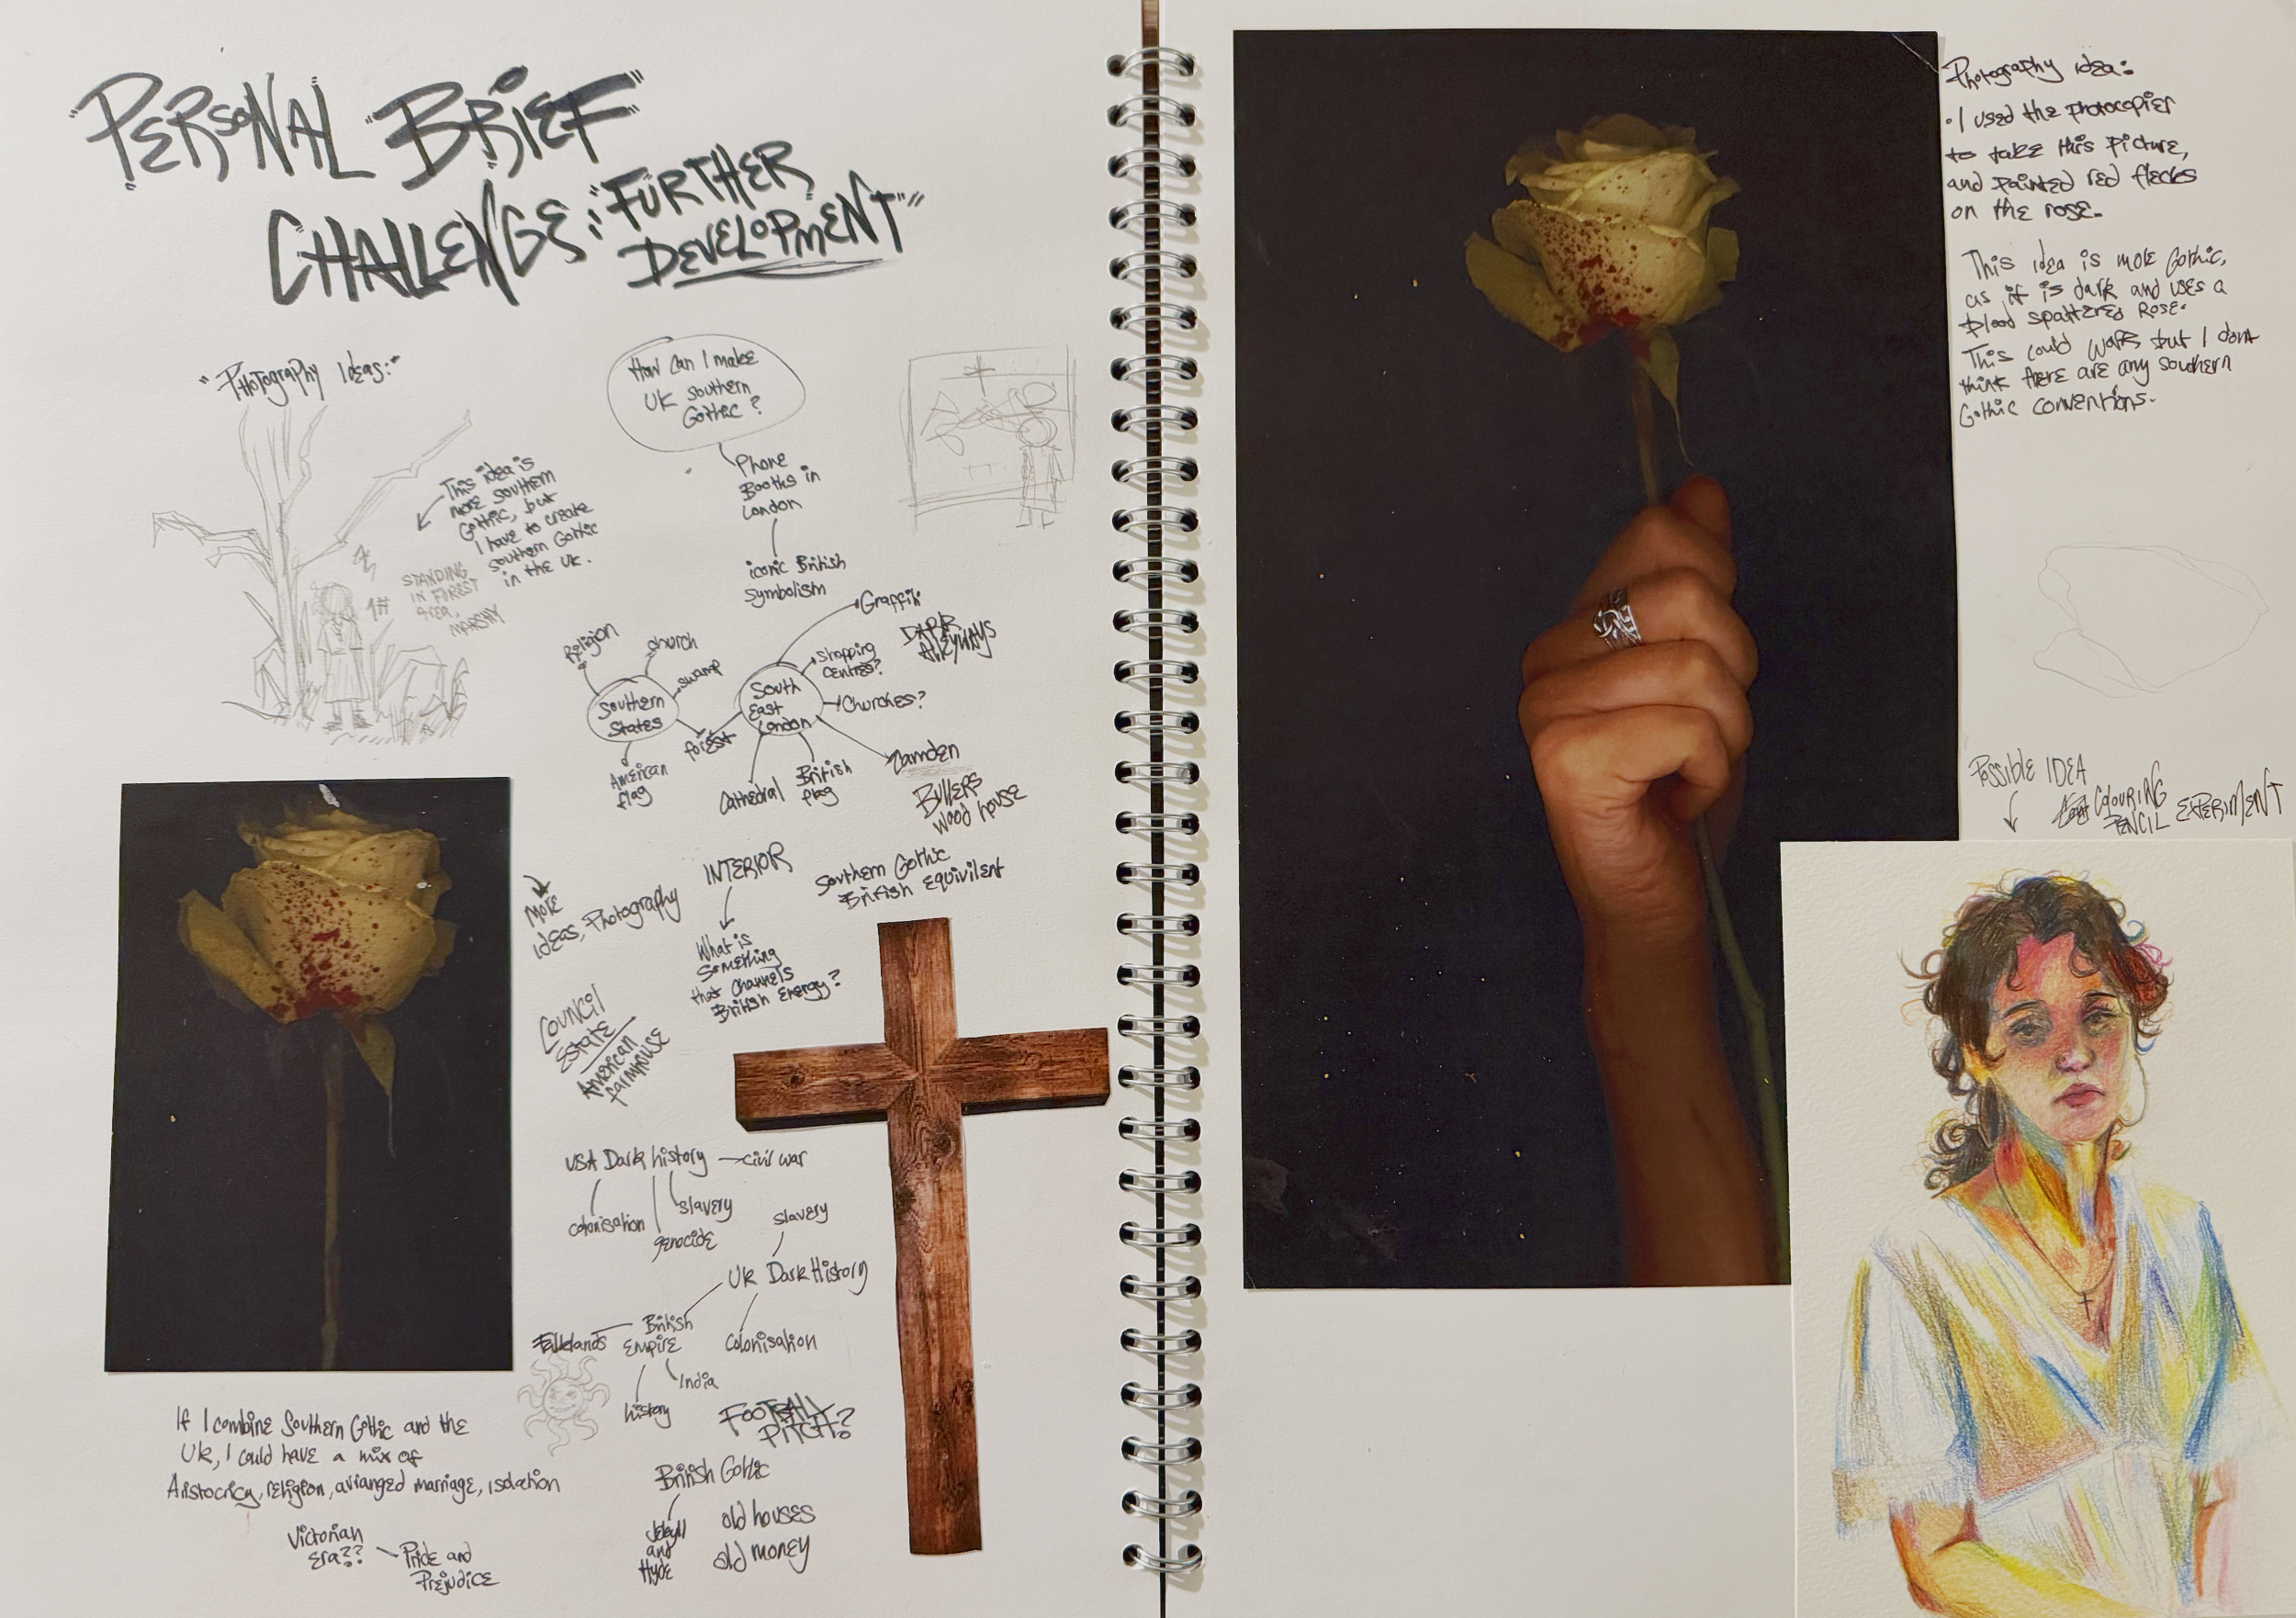 "PERSONAL "BRIEF"
CHALLENGE: "FURTHER
DEVELOPMENT"
"Photography Ideas:"
This idea is
more southern
Gothic, but
I have to create
southern Gothic
in the UK.
STANDING
IN FOREST
AREA.
MARSHY
1#
How can I make
UK southern
Gothic?
Phone
Booths in
London
iconic British
symbolism
Religion
church
swamp
Southern
States
forest
American
flag
South
East
London
Graffiti
DARK
ALLEYWAYS
Shopping
centres?
Churches?
Camden
BULLERS
wood house
British
flag
Cathedral
More
ideas, Photography
INTERIOR
What is
something
that channels
British energy?
Southern Gothic
British equivilent
COUNCIL
Estate
American
farmhouse
USA Dark history
civil war
colonisation
slavery
genocide
slavery
UK Dark History
British
Empire
Falklands
colonisation
India
history
FOOTBALL
PITCH?
British Gothic
Jekyll
and
Hyde
old houses
old money
If I combine Southern Gothic and the
UK, I could have a mix of
Aristocricy, religion, arranged marriage, isolation
Victorian
Era??
Pride and
Prejudice
Photography idea:
• I used the photocopier
to take this picture,
and painted red flecks
on the rose.
This idea is more Gothic,
as it is dark and uses a
blood spattered rose.
This could work but I dont
think there are any southern
Gothic conventions.
POSSIBLE IDEA
COLOURING
PENCIL EXPERIMENT